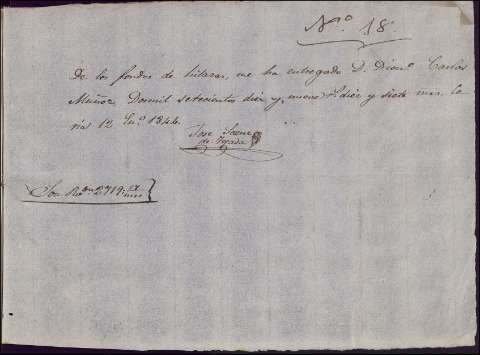 N.º 18.
De los fondos de hilazas, me ha entregado D. Dion.º Carlos
Muñoz Dosmil setecientos diez y nueve diez y siete mrs.
12 En.º 1844.
Jose Saenz
de Tejada
Son R.s 2719